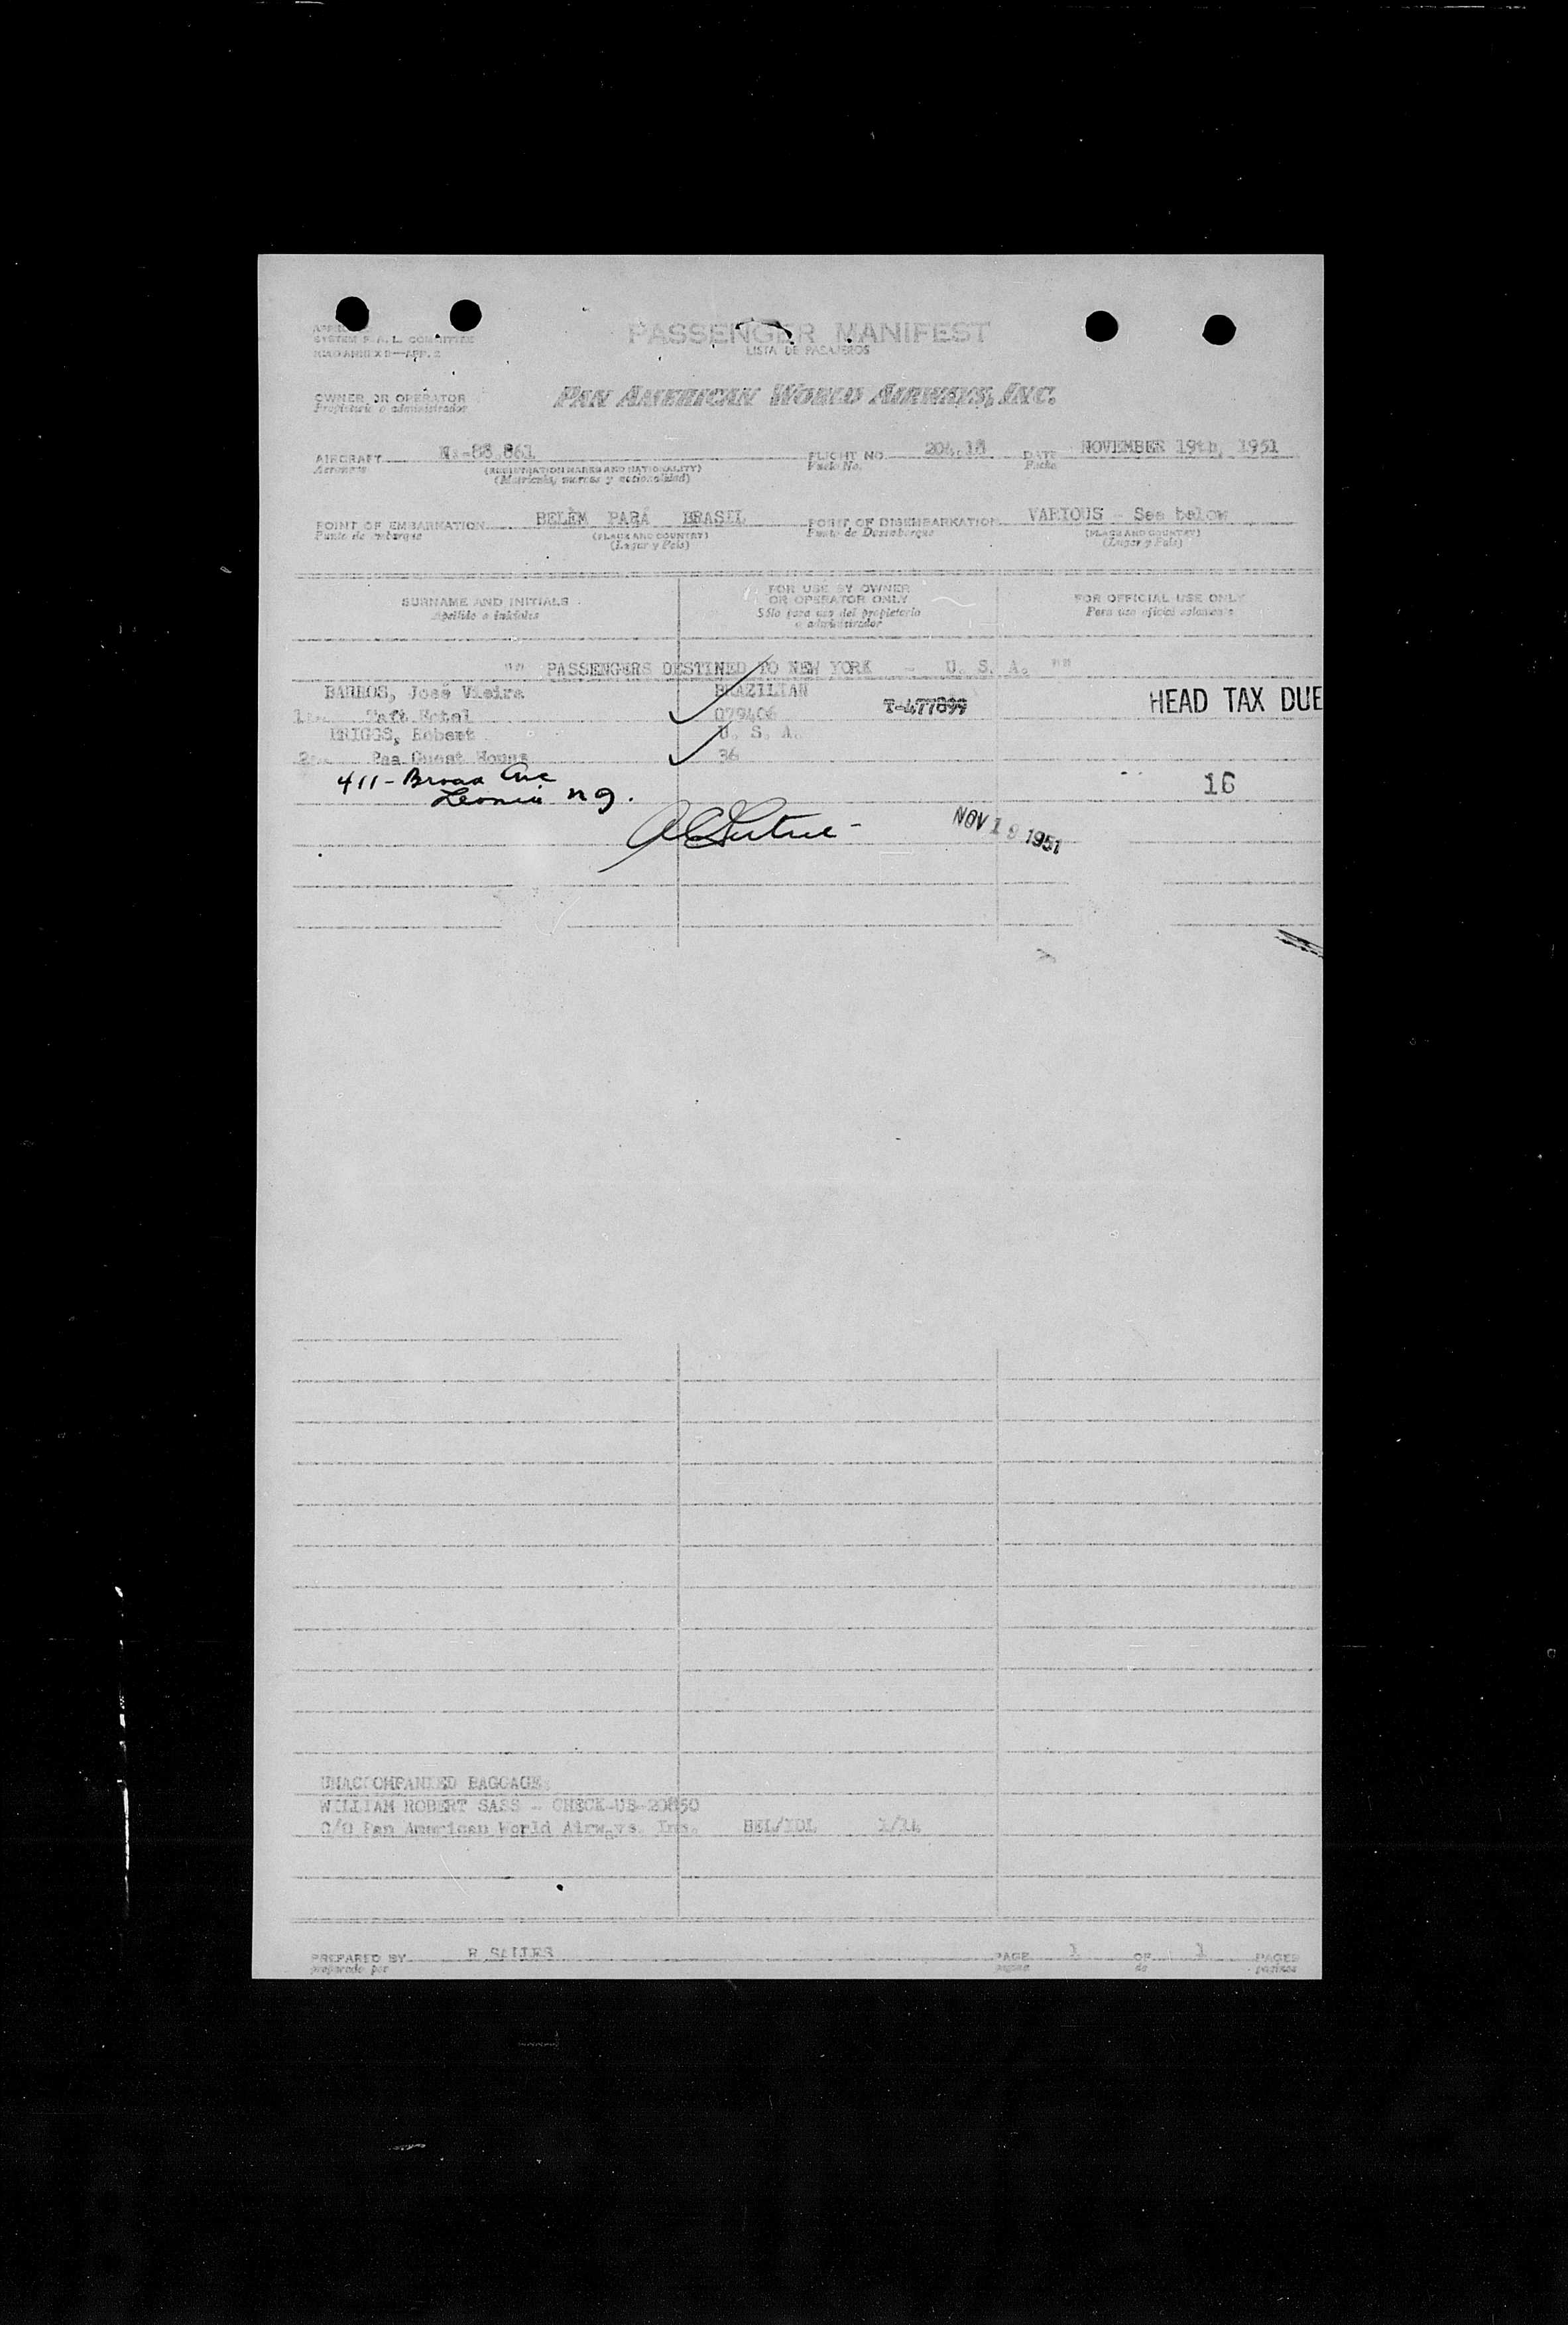 PASSENGER MANIFEST
LISTA DE PASAJEROS
SYSTEM F. A. L. COMMITTEE
OWNER OR OPERATOR
Propietario o administrador
PAN AMERICAN WORLD AIRWAYS, INC.
AIRCRAFT N-88 861 FLIGHT NO. 204.18 DATE NOVEMBER 19th, 1951
Aeronave (REGISTRATION MARKS AND NATIONALITY) Vuelo No. Fecha
(Matrícula, marcas y nacionalidad)
POINT OF EMBARKATION BELÉM PARÁ BRASIL POINT OF DISEMBARKATION VARIOUS - See below
Punto de embarque (PLACE AND COUNTRY) Punto de Desembarque (PLACE AND COUNTRY)
(Lugar y País) (Lugar y País)
SURNAME AND INITIALS FOR USE BY OWNER OR OPERATOR ONLY FOR OFFICIAL USE ONLY
Apellido e iniciales Sólo para uso del propietario o administrador Para uso oficial solamente
"" PASSENGERS DESTINED TO NEW YORK - U. S. A. ""
BARROS, José Vieira BRAZILIAN
1 Taft Hotel 079406 T-477899 HEAD TAX DUE
BRIGGS, Robert U. S. A.
2 Paa Guest House 36
411 - Broad Ave 16
Leonia N J.
NOV 19 1951
UNACCOMPANIED BAGGAGE:
WILLIAM ROBERT SASS - CHECK-US-20850
C/O Pan American World Airways. Inc. BEL/IDL 1/14
PREPARED BY R SALLES PAGE 1 OF 1 PAGES
preparado por página de páginas